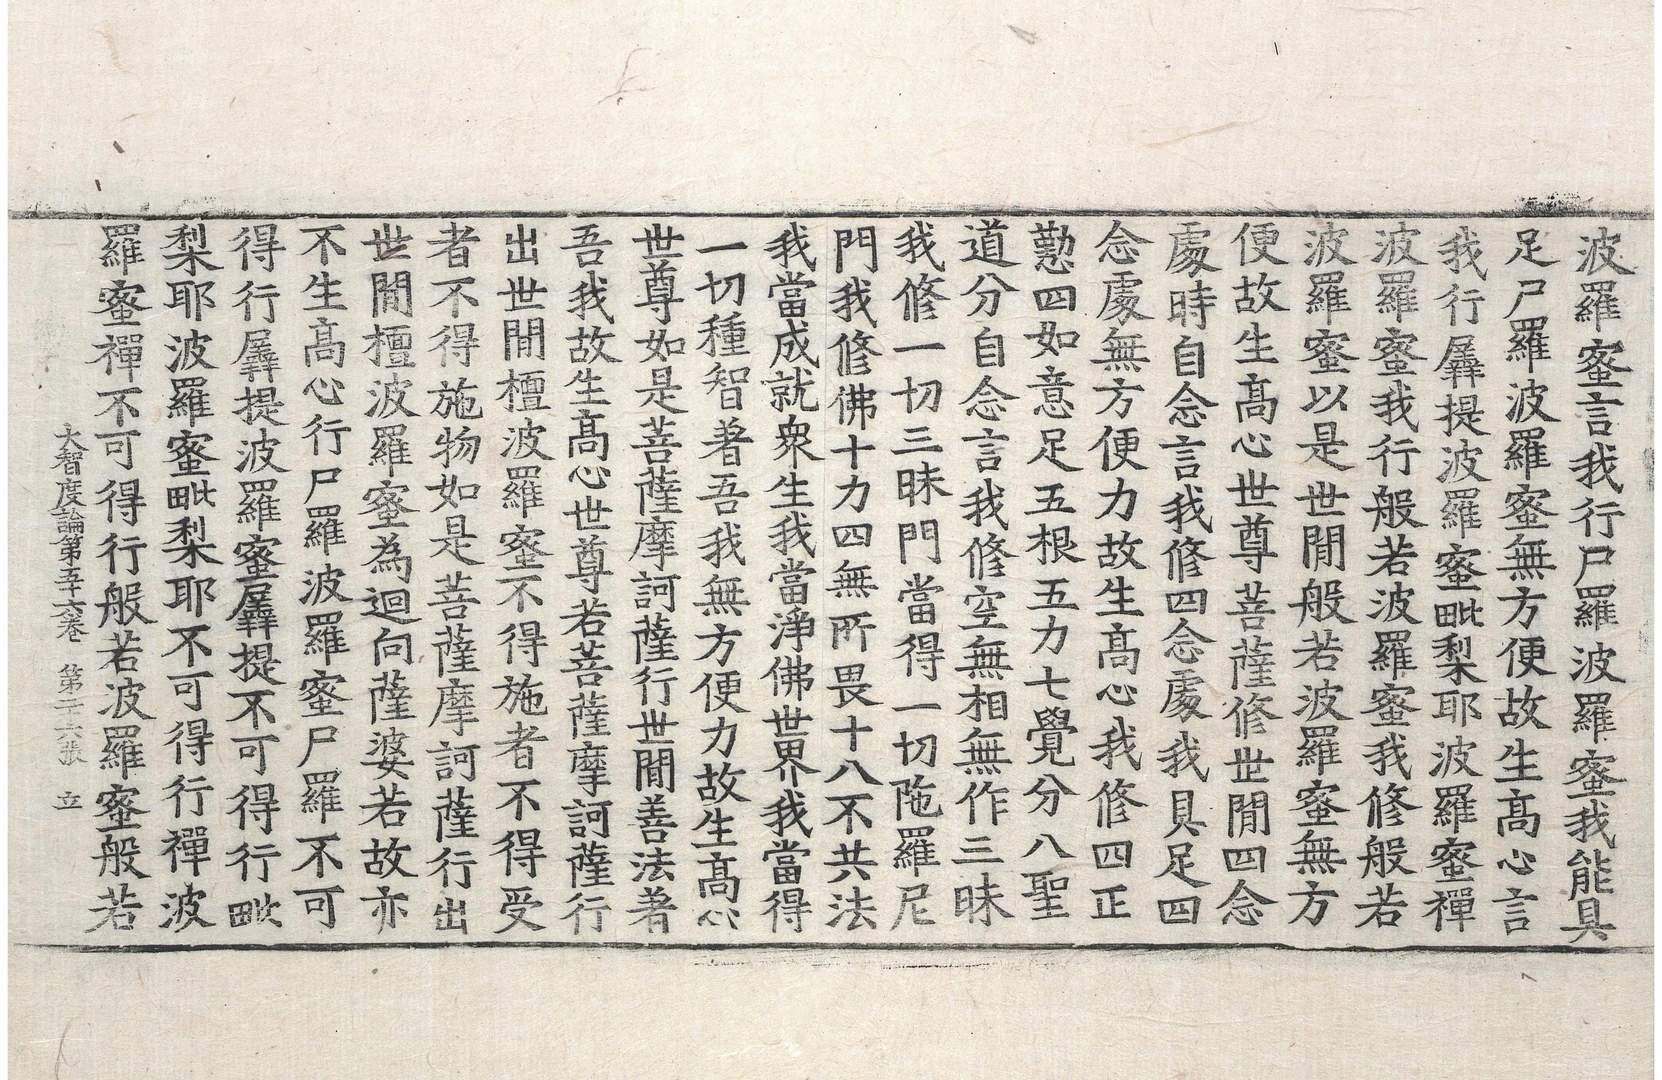 波羅蜜言我行尸羅波羅蜜我能具
足尸羅波羅蜜無方便故生髙心言
我行羼提波羅蜜毗梨耶波羅蜜禪
波羅蜜我行般若波羅蜜我修般若
波羅蜜以是世閒般若波羅蜜無方
便故生髙心世尊菩薩修世閒四念
處時自念言我修四念處我具足四
念處無方便力故生髙心我修四正
懃四如意足五根五力七覺分八聖
道分自念言我修空無相無作三昧
我修一切三昧門當得一切陁羅尼
門我修佛十力四無所畏十八不共法
我當成就衆生我當淨佛世界我當得
一切種智著吾我無方便力故生髙心
世尊如是菩薩摩訶薩行世閒善法著
吾我故生髙心世尊若菩薩摩訶薩行
出世閒檀波羅蜜不得施者不得受
者不得施物如是菩薩摩訶薩行出
世閒檀波羅蜜為迴向薩婆若故亦
不生髙心行尸羅波羅蜜尸羅不可
得行羼提波羅蜜羼提不可得行毗
梨耶波羅蜜毗梨耶不可得行禪波
羅蜜禪不可得行般若波羅蜜般若
大智度論第五十六卷 第二十六張 立